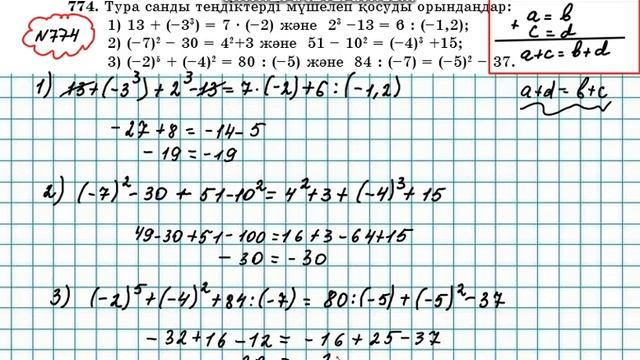 774. Тура санды теңдіктерді мүшелеп қосуды орындаңдар:
1) 13 + (−3³) = 7 · (−2) және 2³ −13 = 6 : (−1,2);
2) (−7)² − 30 = 4²+3 және 51 − 10² = (−4)³ +15;
3) (−2)⁵ + (−4)² = 80 : (−5) және 84 : (−7) = (−5)² − 37.
N774
+ a = b
c = d
a+c = b+d
a+d = b+c
1) 13+(-3³)+2³-13=7·(-2)+6:(-1,2)
-27+8=-14-5
-19=-19
2) (-7)²-30+51-10²=4²+3+(-4)³+15
49-30+51-100=16+3-64+15
-30=-30
3) (-2)⁵+(-4)²+84:(-7)=80:(-5)+(-5)²-37
-32+16-12=-16+25-37